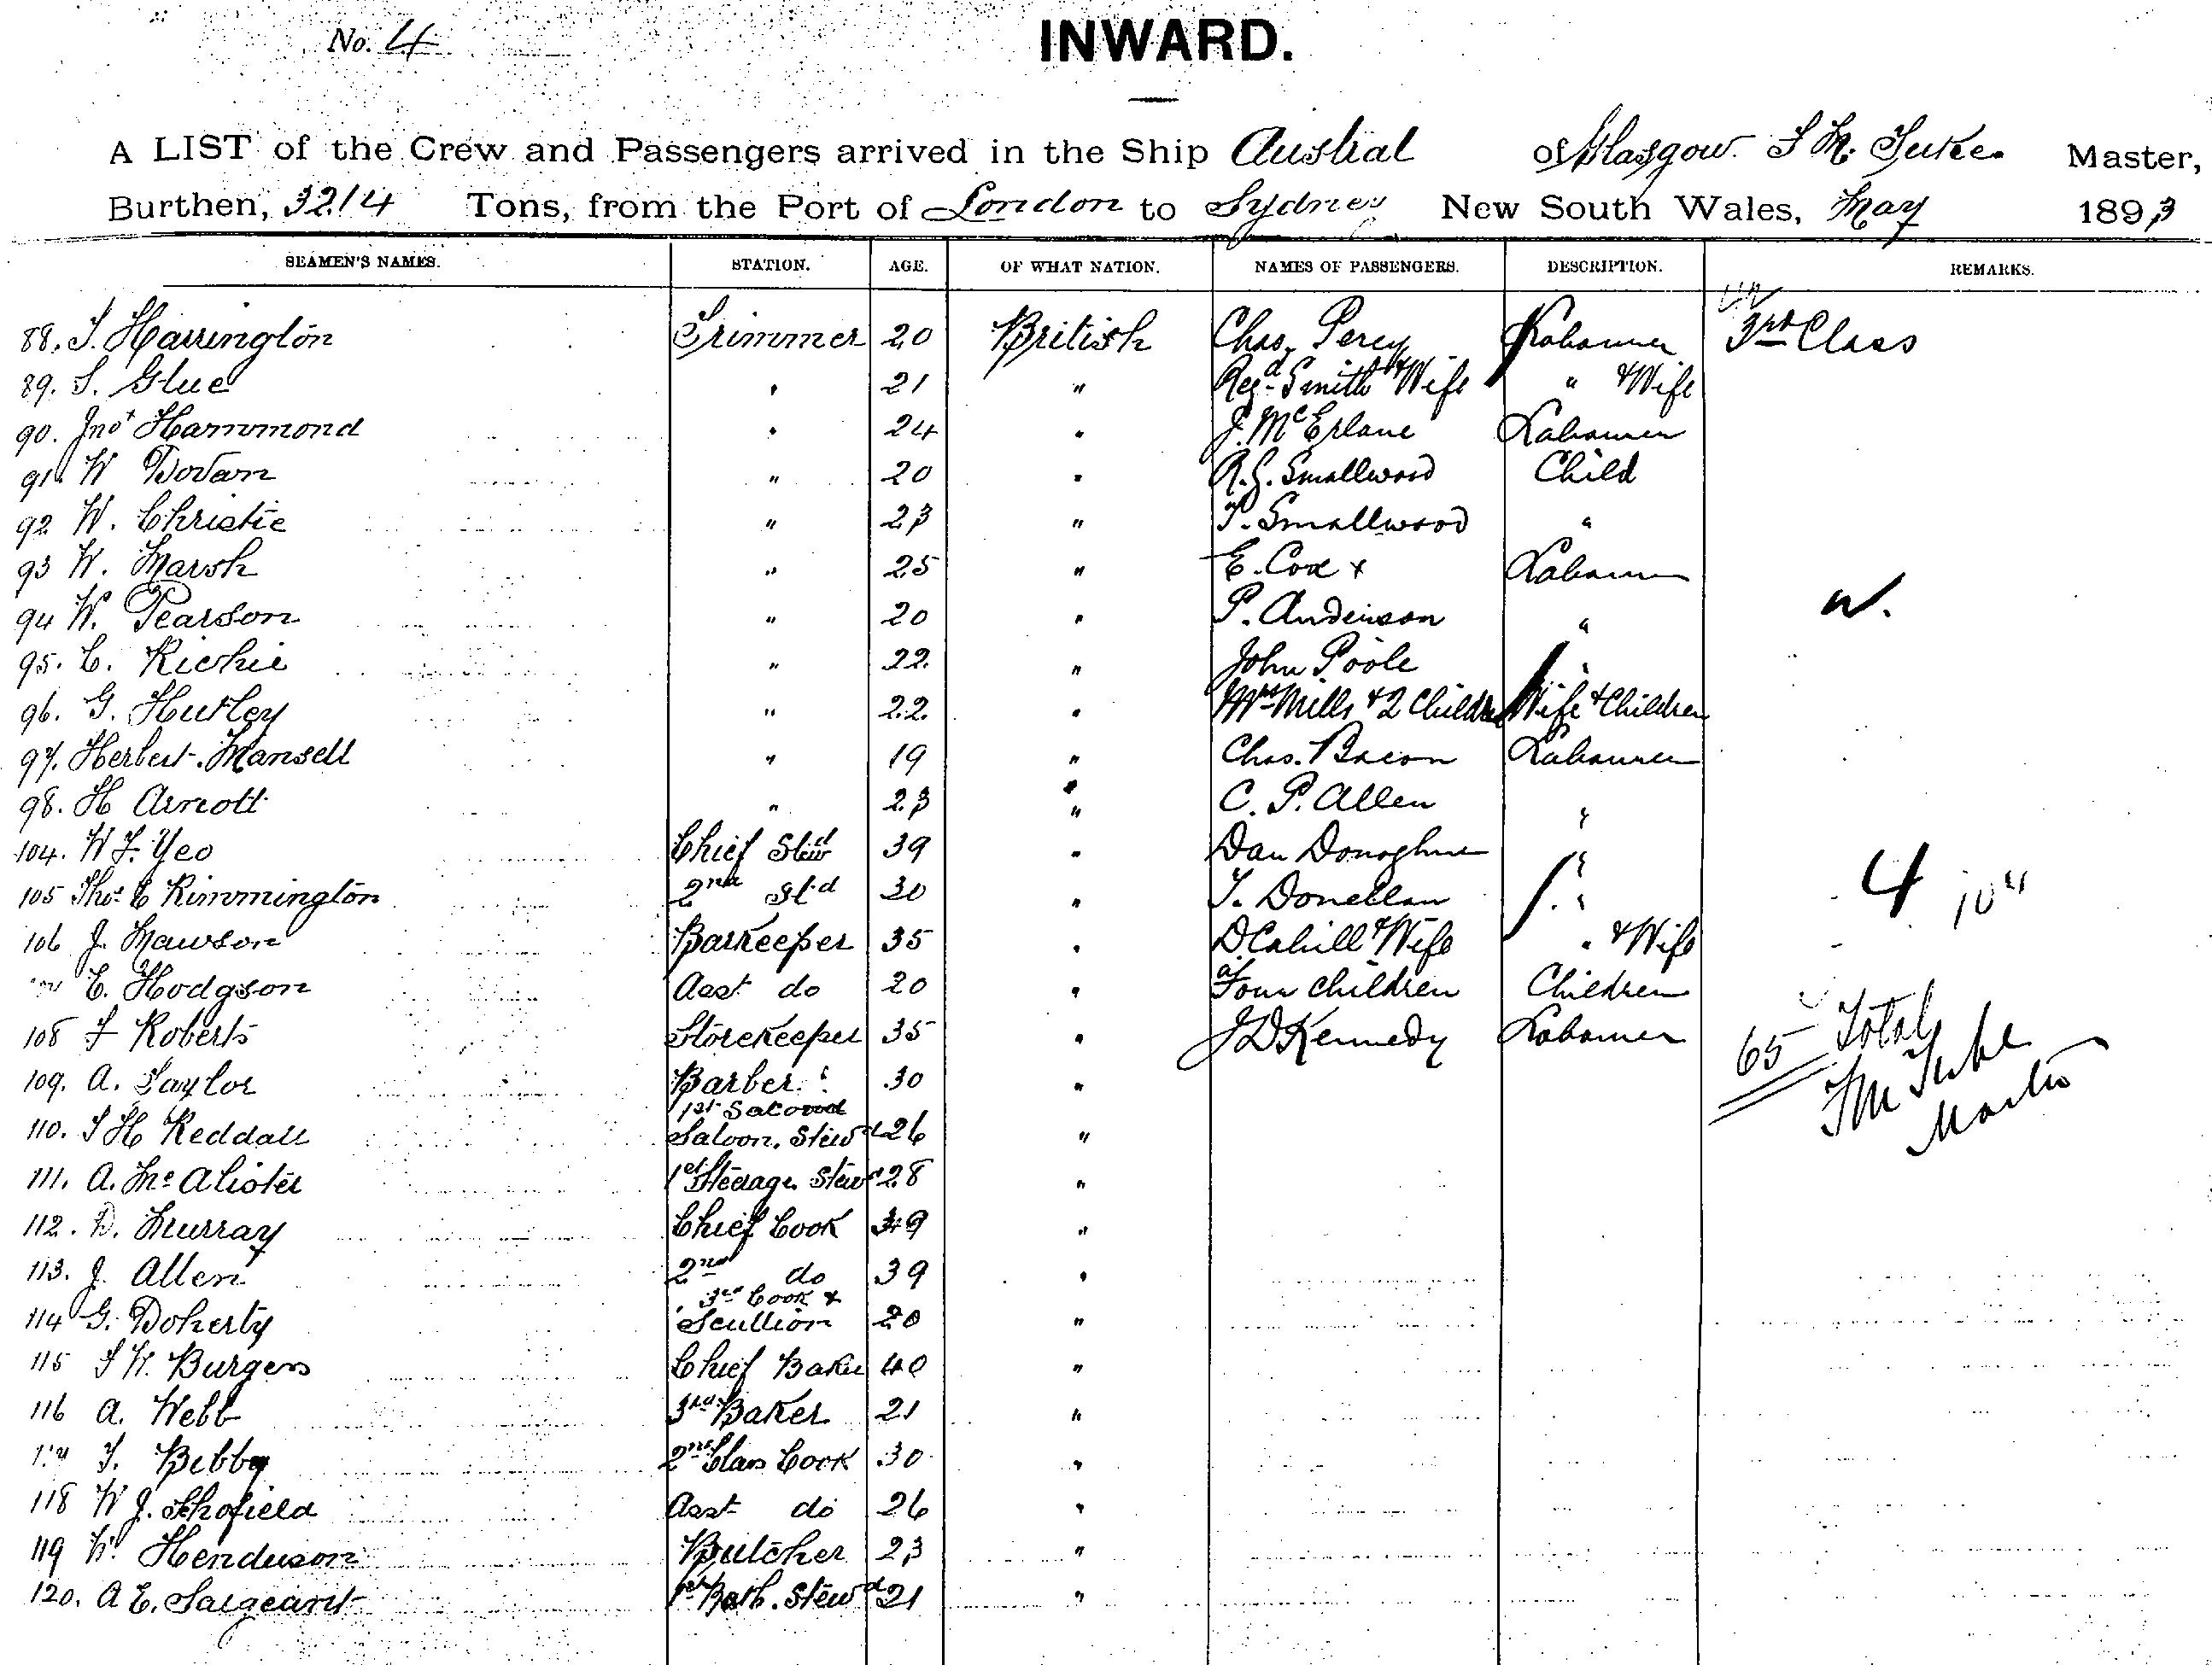 No. 4
INWARD.
A LIST of the Crew and Passengers arrived in the Ship Austral of Glasgow. Master,
Burthen, 3214 Tons, from the Port of London to Sydney New South Wales, May 1893
SEAMEN'S NAMES. STATION. AGE. OF WHAT NATION. NAMES OF PASSENGERS. DESCRIPTION. REMARKS.
88. T. Harrington Trimmer 20 British Chas. Percy Labourer 3rd Class
89. S. Glue " 21 " Regd Smith & Wife " & Wife
90. Jno Hammond " 24 " J. McErlane Labourer
91. W Dovan " 20 " R.G. Smallwood Child
92 W. Christie " 23 " T. Smallwood "
93 W. Marsh " 25 " E. Cox x Labourer
94 W. Pearson " 20 " P. Anderson " W.
95. C. Richie " 22 " John Poole "
96. G. Hurley " 22 " Mrs Mills & 2 Children Wife & Children
97. Herbert Mansell " 19 " Chas. Bacon Labourer
98. H Arnott " 23 " C. P. Allen "
104. W F. Yeo Chief Stewd 39 " Dan Donoghue "
105 Thos C Rimmington 2nd Std 30 " T. Donellan " 4
106 J. Mawson Barkeeper 35 " D Cahill & Wife " & Wife
E. Hodgson Asst do 20 " Four children Children
108 F Roberts Storekeeper 35 " J D Kennedy Labourer 65 Total
109. A. Taylor Barber 30 "
110. T H Reddall 1st Saloon Saloon. Stewd 26 "
111. A. McAlister 1st Steerage Stewd 28 "
112. D. Murray Chief Cook 39 "
113. J. Allen 2nd do 39 "
114 G. Doherty 3rd Cook & Scullion 20 "
115 T W. Burgess Chief Baker 40 "
116 A. Webb 3rd Baker 21 "
117 T. Bibby 2nd Class Cook 30 "
118 W J. Schofield Asst do 26 "
119 W. Henderson Butcher 23 "
120. A E. Sargeant 1st Bath. Stewd 21 "
Master